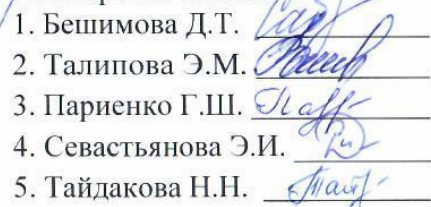 1. Бешимова Д.Т.
2. Талипова Э.М.
3. Париенко Г.Ш.
4. Севастьянова Э.И.
5. Тайдакова Н.Н.